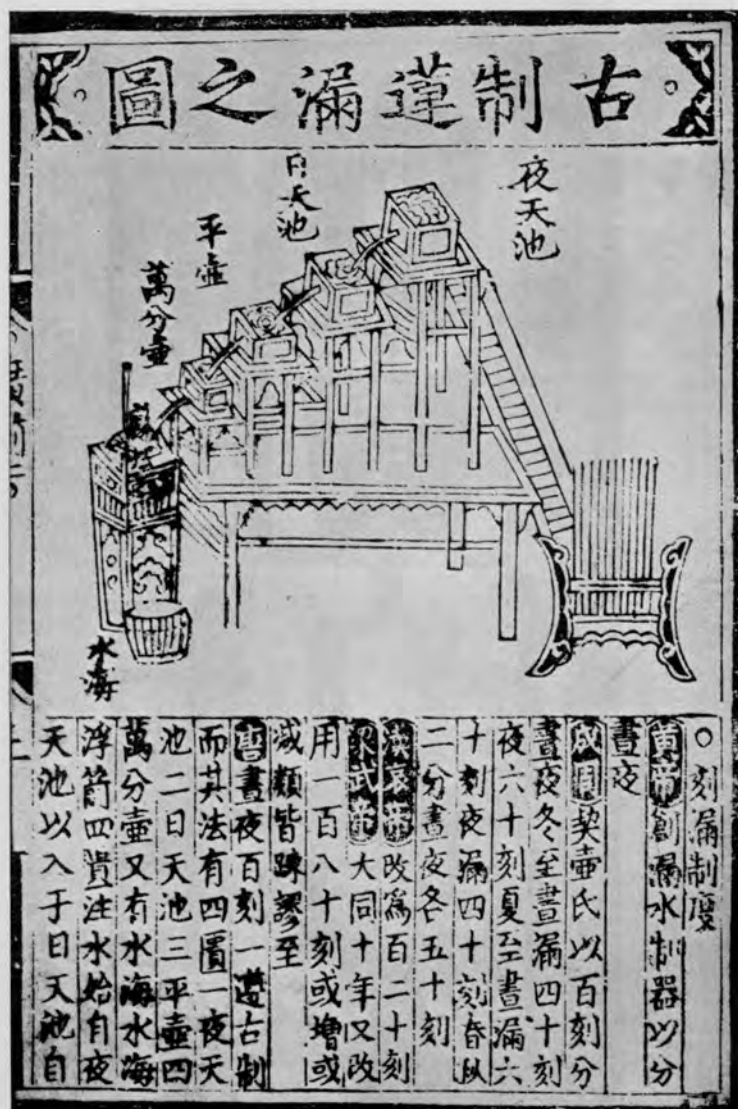 古制蓮漏之圖
夜天池
日天池
平壺
萬分壺
水海
○刻漏制度
黃帝創漏水制器以分
晝夜
成周挈壺氏以百刻分
晝夜冬至晝漏四十刻
夜六十刻夏至晝漏六
十刻夜漏四十刻春秋
二分晝夜各五十刻
漢哀帝改爲百二十刻
梁武帝大同十年又改
用一百八十刻或增或
減類皆踈謬至
唐晝夜百刻一遵古制
而其法有四匱一夜天
池二日天池三平壺四
萬分壺又有水海水海
浮箭四匱注水始自夜
天池以入于日天池自